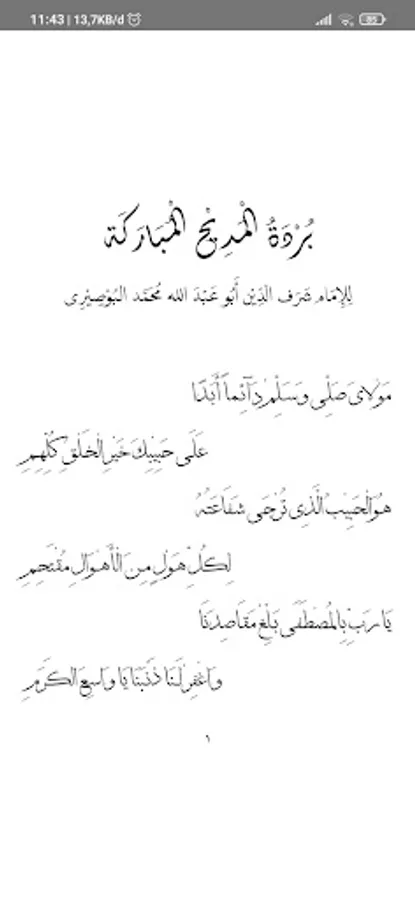 11:43 | 13,7KB/d
85
بُرْدَةُ الْمَدِيْحِ الْمُبَارَكَة
لِلإِمَام شَرَف الدِّيْن أَبُو عَبْدَ الله مُحَمَّد البُوْصِيْرِى
مَوْلَايَ صَلِّى وَسَلِّمْ دَآئِماً أَبَدًا
عَلَى حَبِيْبِكَ خَيْرِ الْخَلْقِ كُلِّهِمِ
هُوَ الْحَبِيْبُ الَّذِى تُرْجَى شَفَاعَتُهُ
لِكُلِّ هَوْلٍ مِنَ الْأَهْوَالِ مُقْتَحِمِ
يَا رَبِّ بِالْمُصْطَفَى بَلِّغْ مَقَاصِدَنَا
وَاغْفِرْ لَنَا ذَنْبَنَا يَا وَاسِعَ الْكَرَمِ
١